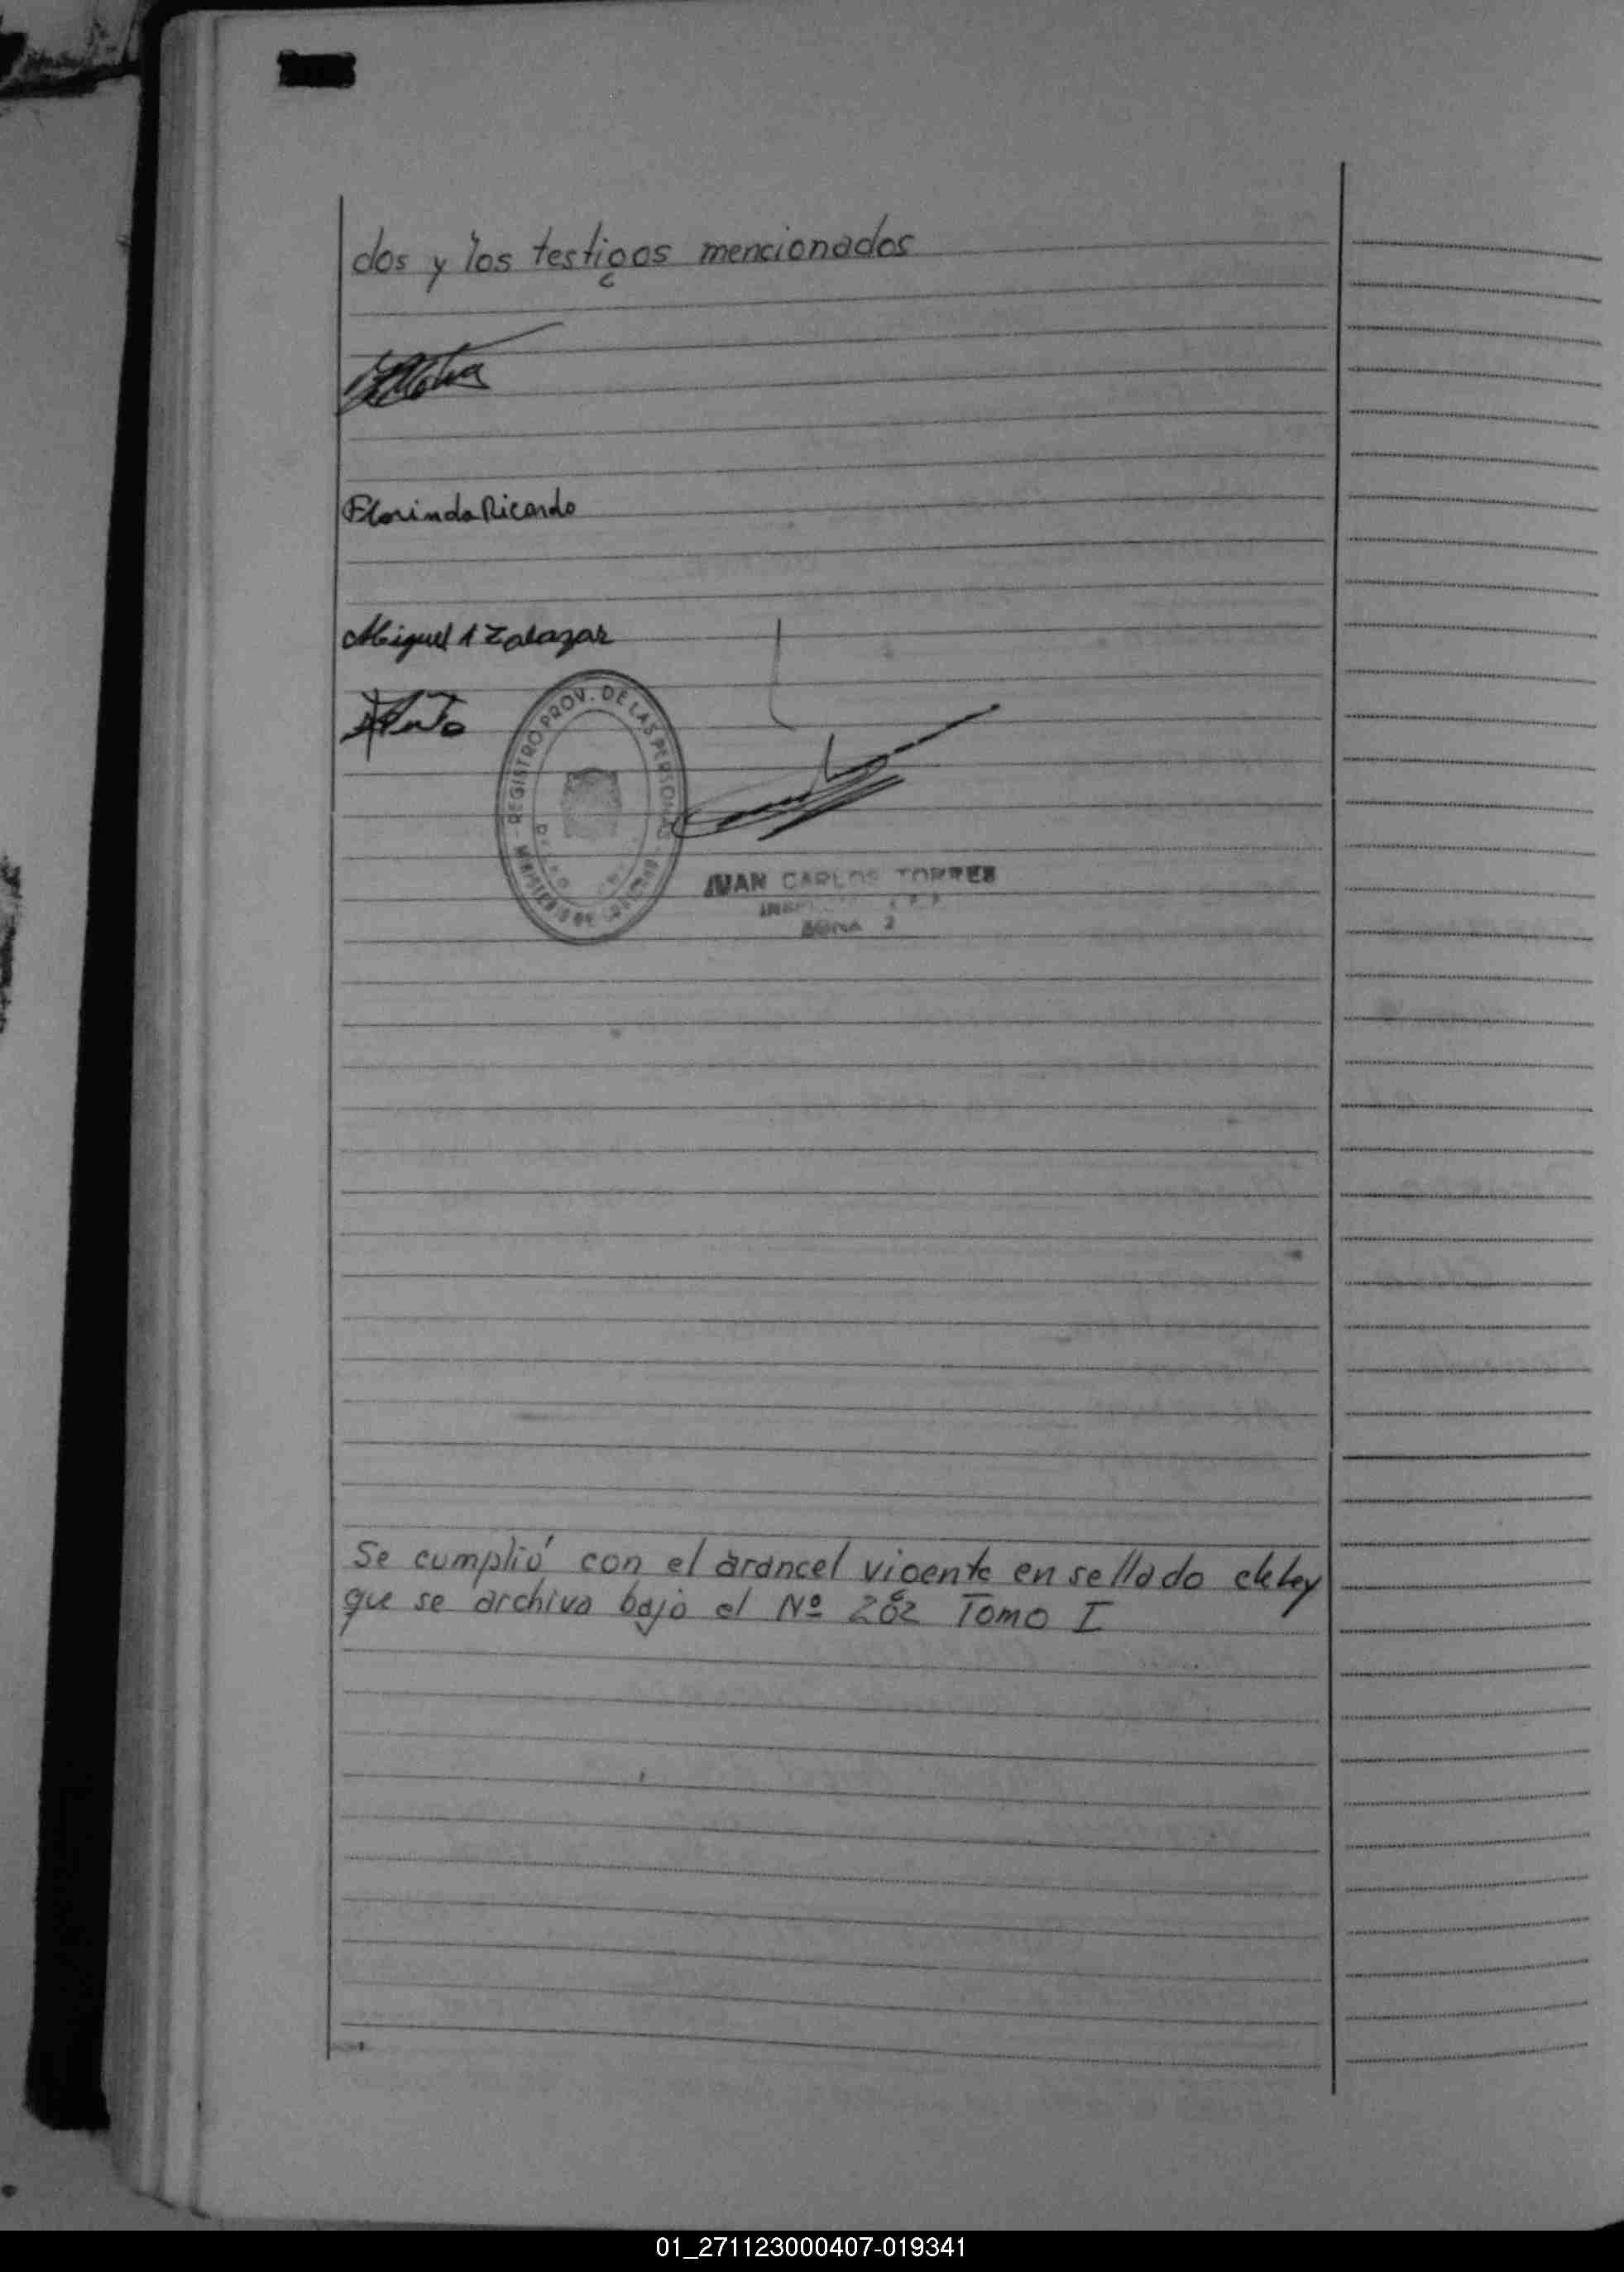 dos y los testigos mencionados
Florinda Ricardo
Miguel A Zalazar
REGISTRO PROV. DE LAS PERSONAS
MINISTERIO DE
JUAN CARLOS TORRES
ZONA 2
Se cumplió con el arancel vigente en sellado de ley
que se archiva bajo el Nº 282 Tomo I
01_271123000407-019341